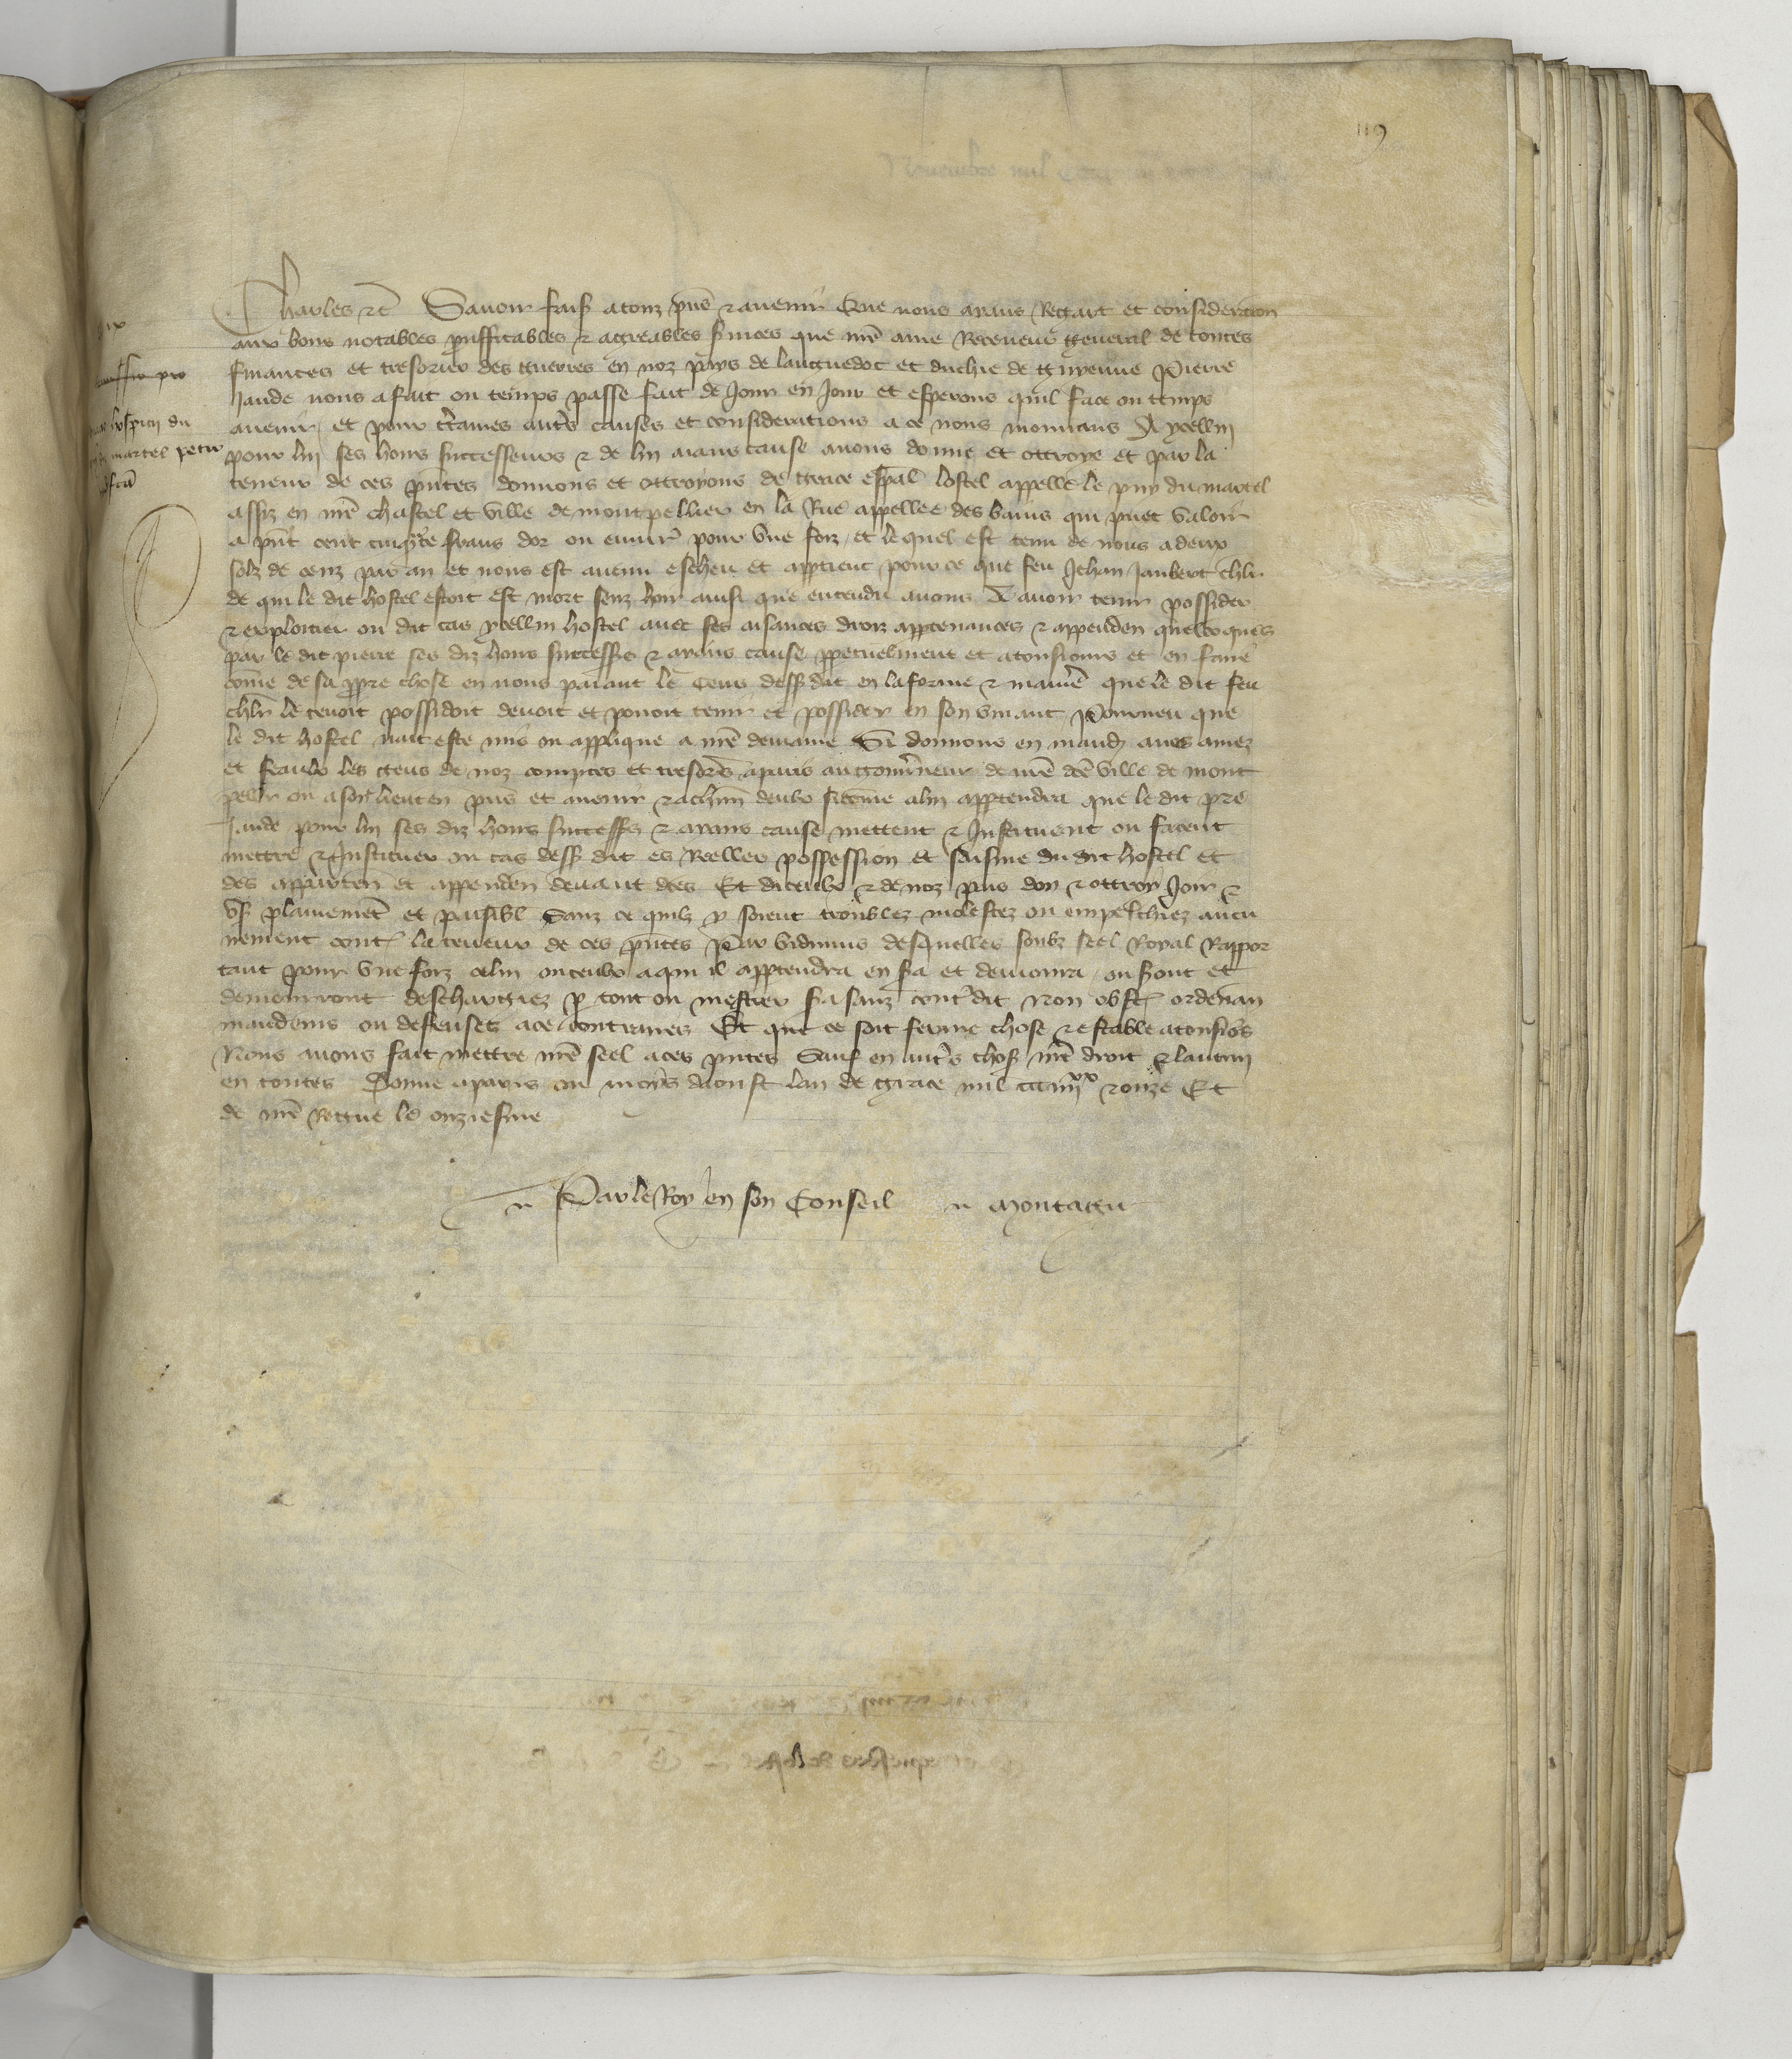 119
Charles etc Savoir fais a touz pns et avenir Que nous aians Regart et consideracion
aux bons notables prouffitables et aggreables svices que nre ame Receveur general de toutes
finances et tresorier des guerres en noz pays de languedoc et duchie de guyenne Pierre
Jaude nous a fait ou temps passe fait de Jour en Jour et esperons quil face ou temps
avenir et pour ctaines autes causes et consideracions a ce nous mouvans A ycellui
pour lui ses hoirs successeurs et de lui aians cause avons donne et ottroye et par la
teneur de ces pntes donnons et ottroyons de grace espal lostel appelle le puy du martel
assiz en nre chastel et ville de montpellier en la Rue appellee des bains qui puet valoir
a pnt cent cinqte frans dor ou envir pour une foiz et lequel est tenu de nous a deux
solz de cenz par an et nous est avenu escheu et apptient pour ce que feu Jehan Jaubert chlr
de qui le dit hostel estoit est mort senz hoir ainsi que entendu avons A avoir tenir possider
et exploitier ou dit cas ycellui hostel avec ses aisances droiz apptenances et appenden quelxoques
par le dit pierre ses diz hoirs successrs et aians cause ppetuelment et a tousiours et en faire
come de sa ppre chose en nous paiant le Cens dess dit en la forme et manie que le dit feu
chlr le tenoit possidoit devoit et povoit tenir et possider en son vivant Pourveu que
le dit hostel nait este mis ou applique a nre demaine Si donnons en mand a noz amez
et feaulx les gens de noz comptes et tresories a paris au gouvneur de nre dce ville de mont
pellr ou a son lieuten pns et avenir et a chun deulx sicome a lui apptendra que le dit pre
Jaude pour lui ses diz hoirs successrs et aians cause mettent et Instituent ou facent
mettre et Instituer ou cas dess dit es Reelles possession et saisine du dit hostel et
des apparten et appenden devant dces Et diceulx et de noz pns don et ottroy Joir et
us plainemet et paisibl Sanz ce quilz y soient troublez molestez ou empeschiez aucu
nement cont la teneur de ces pntes Par vidimus desquelles soubz seel Royal Rappor
tant pour une foiz celui ou ceulx a qui il apptendra en sa et demoura ou sont et
demourront deschargiez p tout ou mestier sa sanz contdit Non obst ordenan
mandems ou defenses a ce contraires Et que ce soit ferme chose et estable a tousios
Nous avons fait mettre nre seel a ces pntes Sauf en autes chos nre droit et lautrui
en toutes Donne a paris ou mois daoust lan de grace mil ccc iiiixx et onze Et
de nre Regne le onziesme
Par le Roy en son Conseil Montagu
hospicii du
martel petro